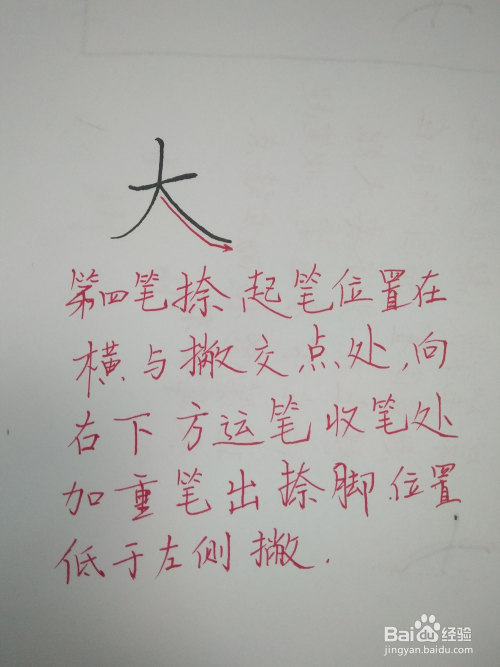 大
第四笔捺起笔位置在
横与撇交点处,向
右下方运笔收笔处
加重笔出捺脚.位置
低于左侧撇.
Baidu经验
jingyan.baidu.com